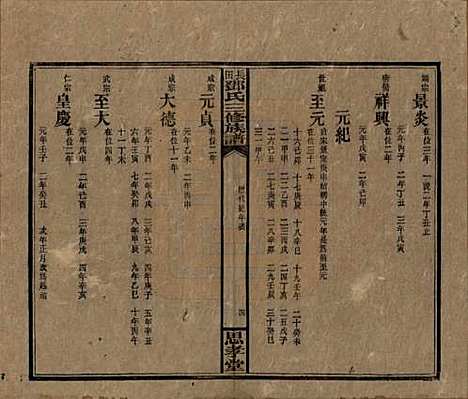 端宗 景炎
在位二年 一號二年丁丑止
元年丙子 二年丁丑
帝昺 祥興
在位二年
元年戊寅 二年己卯
元紀
世祖 至元
在位三十一年
十六己卯 十七庚辰 十八辛巳 十九壬午 二十癸未
二一甲申 二二乙酉 二三丙戌 二四丁亥 二五戊子
二六己丑 二七庚寅 二八辛卯 二九壬辰 三十癸巳
三一甲午
鄧氏三修族譜
歷代紀年表
四
思孝堂
成宗 元貞
在位二年
元年乙未 二年丙申
成宗 大德
在位十一年
元年丁酉 二年戊戌 三年己亥 四年庚子 五年辛丑
六年壬寅 七年癸卯 八年甲辰 九年乙巳 十年丙午
十一丁未
武宗 至大
在位四年
元年戊申 二年己酉 三年庚戌 四年辛亥
仁宗 皇慶
在位二年
元年壬子 二年癸丑 次年正月改爲延祐